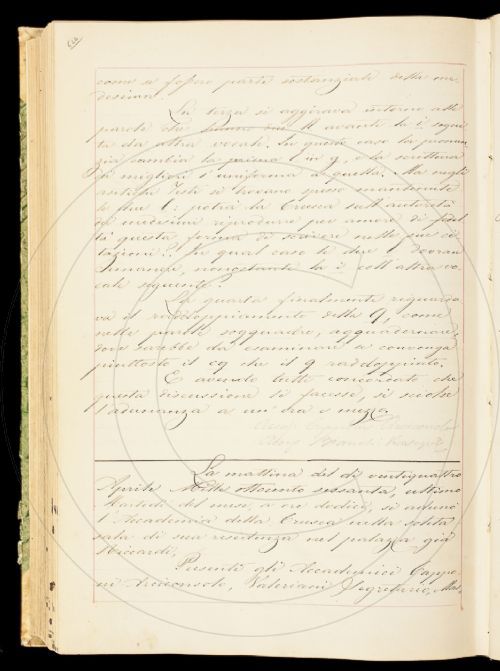 come se fossero parte sostanziale della me-
desima.
La terza si aggirava intorno alle
parole che hanno due ll avanti la i segui-
ta da altra vocale. In questo caso la pronun-
zia cambia la prima l in g, e la scrittura
dei migliori s'uniforma a quella. Ma negli
antichi Testi si trovano spesso mantenute
le due l: potrà la Crusca sull'autorità
de' medesimi riprodurre per amore di fedel-
tà questa forma di scrivere nelle sue ci-
tazioni? In qual caso le due l
nonostante la i coll'altra vo-
cale seguente.
La quarta finalmente riguarda-
va il raddoppiamento della q, come
nelle parole soqquadro, aqquadernare,
dove sarebbe da esaminare se convenga
piuttosto il cq che il q raddoppiato.
E avendo tutti concordato che
questa discussione si facesse, si sciolse
l'adunanza a un'ora e mezzo.
La mattina del dì ventiquattro
Aprile Mille ottocento sessanta, ultimo
Martedì del mese, a ore dodici, si adunò
l'Accademia della Crusca nella solita
sala di sua residenza nel palazzo già
Riccardi.
Presenti gli Accademici Cappo-
ni Arciconsolo, Valeriani Segretario,